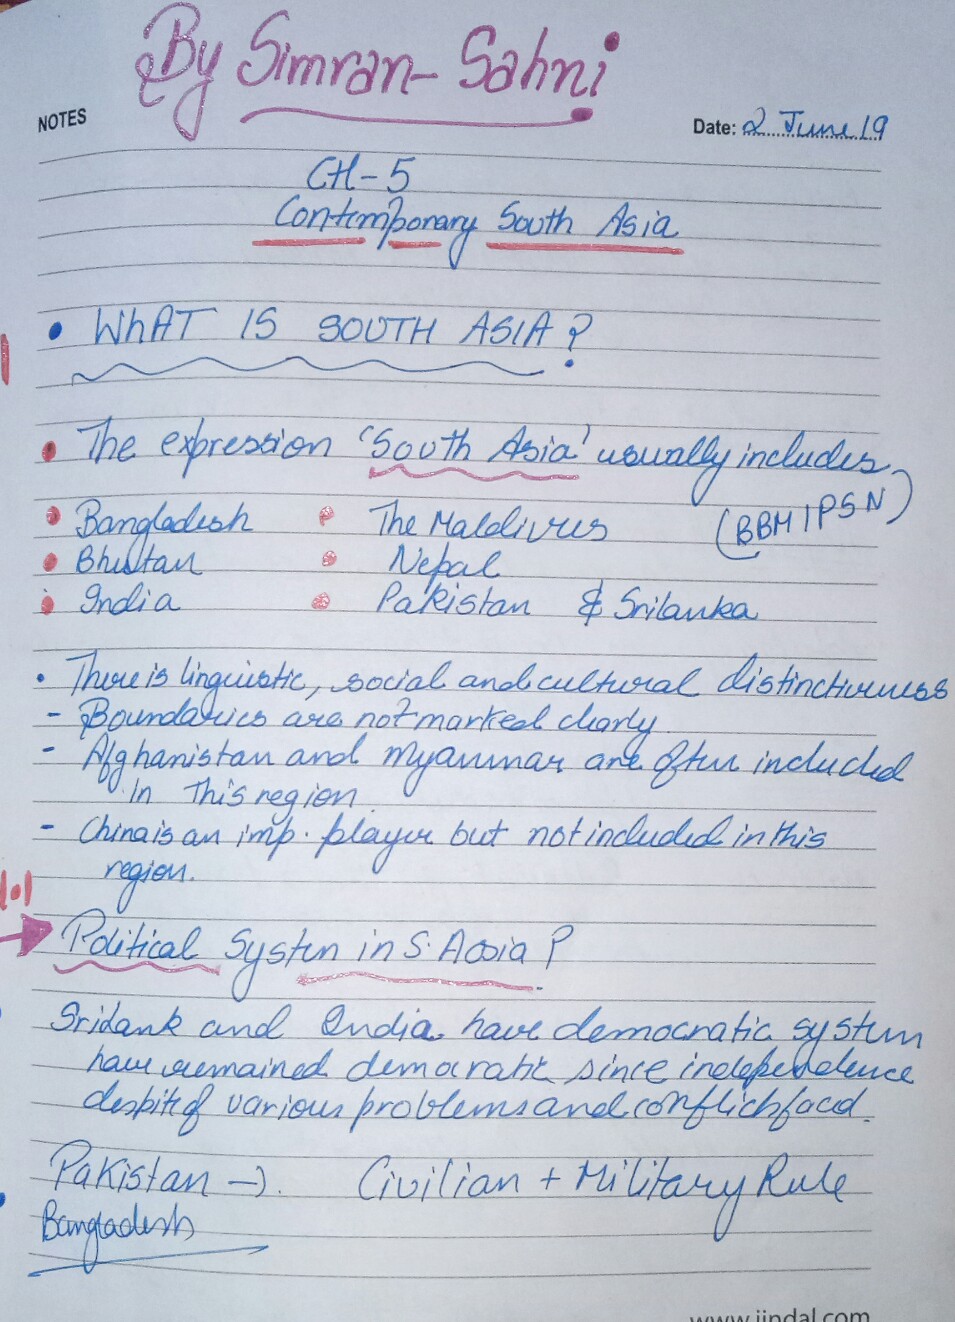 By Simran-Sahni
NOTES
Date: 2 June 19
CH-5
Contemporary South Asia
• WHAT IS SOUTH ASIA?
1
• The expression 'South Asia' usually includes
• Bangladesh • The Maldives (BBMIPSN)
• Bhutan • Nepal
• India • Pakistan & Srilanka
• There is linguistic, social and cultural distinctiveness
- Boundaries are not marked clearly
- Afghanistan and Myanmar are often included
in this region.
- China is an imp. player but not included in this
region.
1.1
→ Political System in S. Asia?
Sridank and India have democratic system
have remained democratic since independence
despite of various problems and conflicts faced.
Pakistan →. Civilian + Military Rule
Bangladesh
www.jindal.com